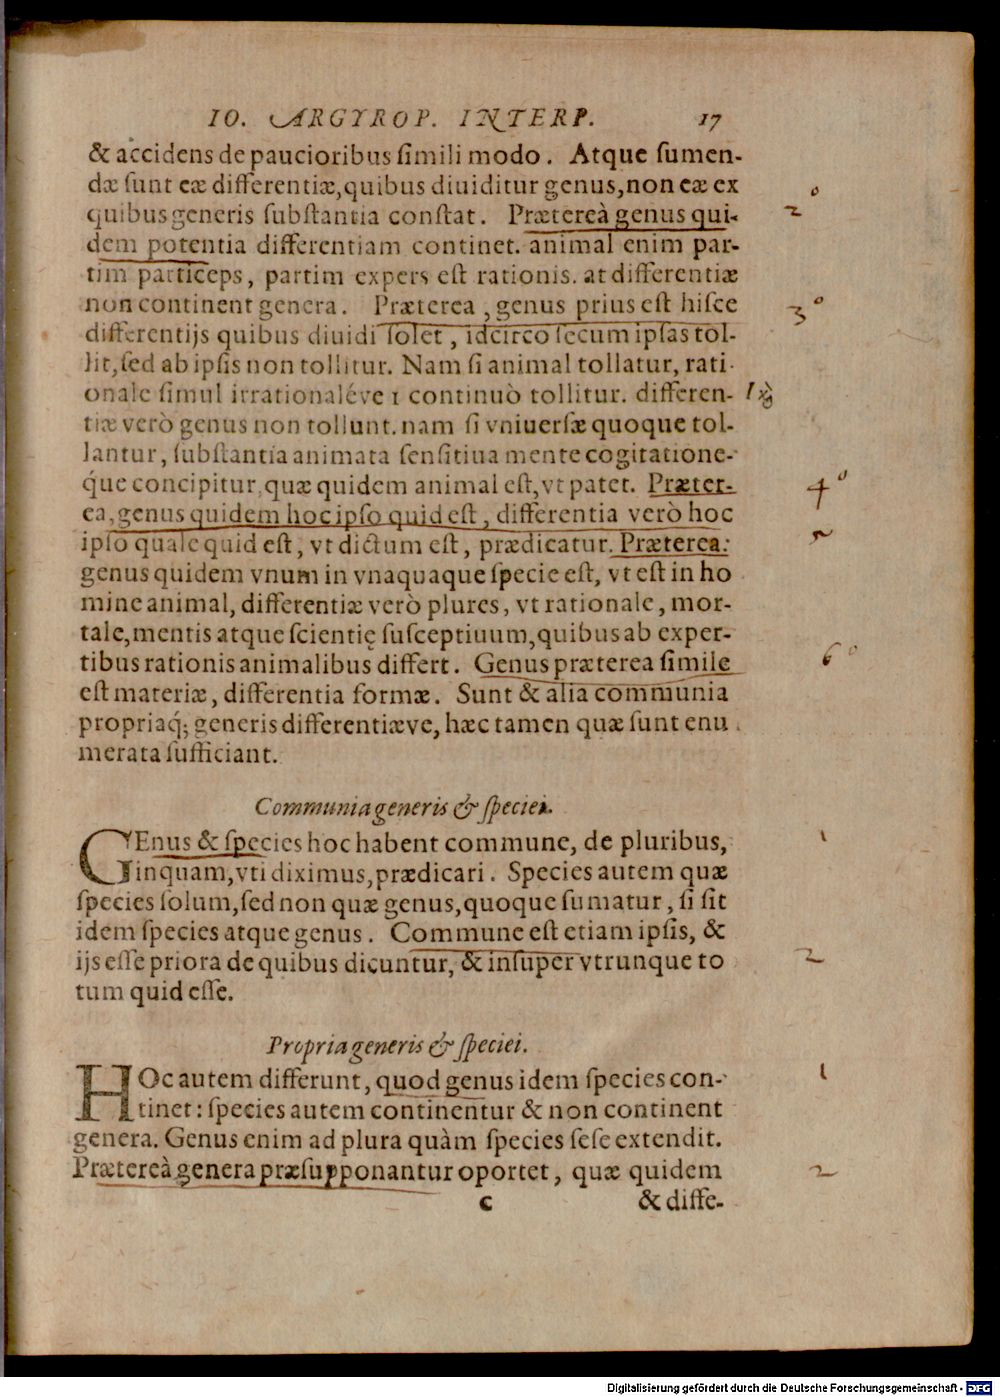 IO. ARGYROP. INTERP. 17
& accidens de paucioribus simili modo. Atque sumen-
dæ sunt eæ differentiæ, quibus diuiditur genus, non eæ ex
quibus generis substantia constat. Prætereà genus qui-
dem potentia differentiam continet. animal enim par-
tim particeps, partim expers est rationis. at differentiæ
non continent genera. Præterea, genus prius est hisce
differentijs quibus diuidi solet, idcirco secum ipsas tol-
lit, sed ab ipsis non tollitur. Nam si animal tollatur, rati-
onale simul irrationaléve 1 continuò tollitur. differen-
tiæ verò genus non tollunt. nam si vniuersæ quoque tol-
lantur, substantia animata sensitiua mente cogitatione-
q́ue concipitur, quæ quidem animal est, vt patet. Præter-
ea, genus quidem hoc ipso quid est, differentia verò hoc
ipso quale quid est, vt dictum est, prædicatur. Præterea:
genus quidem vnum in vnaquaque specie est, vt est in ho
mine animal, differentiæ verò plures, vt rationale, mor-
tale, mentis atque scientię susceptiuum, quibus ab exper-
tibus rationis animalibus differt. Genus præterea simile
est materiæ, differentia formæ. Sunt & alia communia
propriaq́; generis differentiæve, hæc tamen quæ sunt enu
merata sufficiant.
Communia generis & speciei.
GEnus & species hoc habent commune, de pluribus,
inquam, vti diximus, prædicari. Species autem quæ
species solum, sed non quæ genus, quoque sumatur, si sit
idem species atque genus. Commune est etiam ipsis, &
ijs esse priora de quibus dicuntur, & insuper vtrunque to
tum quid esse.
Propria generis & speciei.
HOc autem differunt, quod genus idem species con-
tinet: species autem continentur & non continent
genera. Genus enim ad plura quàm species sese extendit.
Prætereà genera præsupponantur oportet, quæ quidem
c & diffe-
2°
3°
4°
5
6°
1
2
1
2
Digitalisierung gefördert durch die Deutsche Forschungsgemeinschaft - DFG